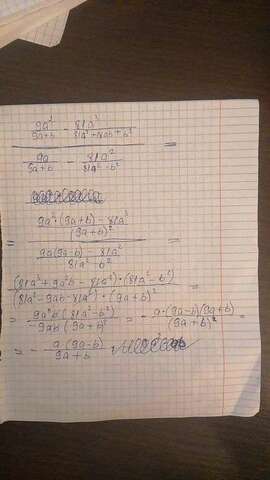 9a² / (9a+b) - 81a³ / (81a²+18ab+b²)
9a / (9a+b) - 81a² / (81a²-b²) =
= (9a²·(9a+b) - 81a³) / (9a+b)²
(9a(9a-b) - 81a²) / (81a²-b²) =
(81a³+9a²b-81a³)·(81a²-b²) / (81a²-9ab-81a²)·(9a+b)² =
= 9a²b(81a²-b²) / -9ab(9a+b)² = - a·(9a-b)(9a+b) / (9a+b)² =
= - a(9a-b) / 9a+b